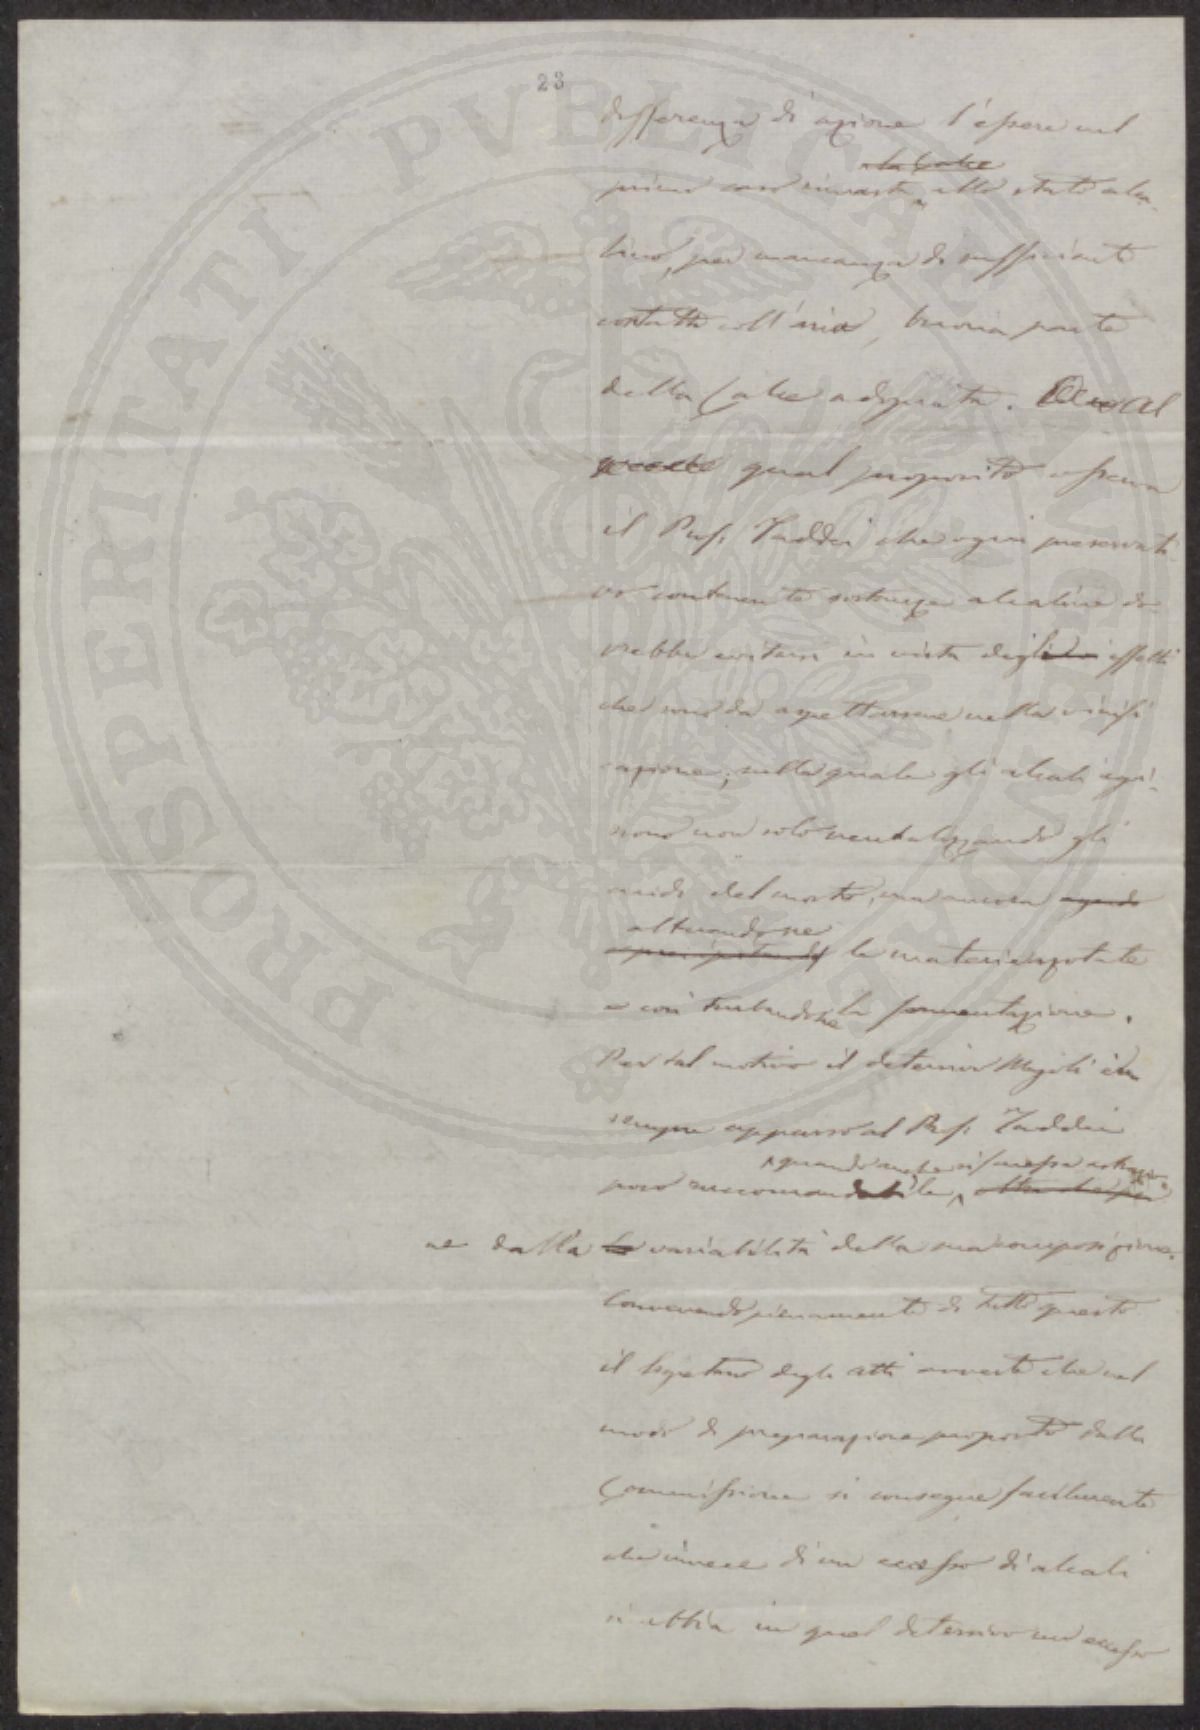 23
differenza di azione l'essere nel
la Calce
primo caso rimasta allo stato alca-
lino, per mancanza di sufficiente
contatto coll'aria, buona parte
della Calce adoprata. Al
qual proposito osserva
il Prof. Taddei che ogni preservati-
vo contenente sostanze alcaline do-
vrebbe evitarsi in vista degli effetti
che sono da aspettarsene nella vinifi-
cazione, nella quale gli alcali agi-
scono non solo neutralizzando gli
acidi del mosto, ma ancora agendo
alterandone
e precipitando le materie azotate
e così turbandone la fermentazione.
Per tal motivo il detersivo Majoli è
sempre apparso al Prof. Taddei
quando anche si facesse astrazio-
poco raccomandabile, oltre che per
ne dalla la variabilità della sua composizione.
Convenendo pienamente di tutto questo
il Segretario degli Atti avverte che nel
modo di preparazione proposto dalla
Commissione si consegue facilmente
che invece di un eccesso di alcali
si abbia in quel detersivo un eccesso
PROSPERITATI PVBLICAE AVGENDAE